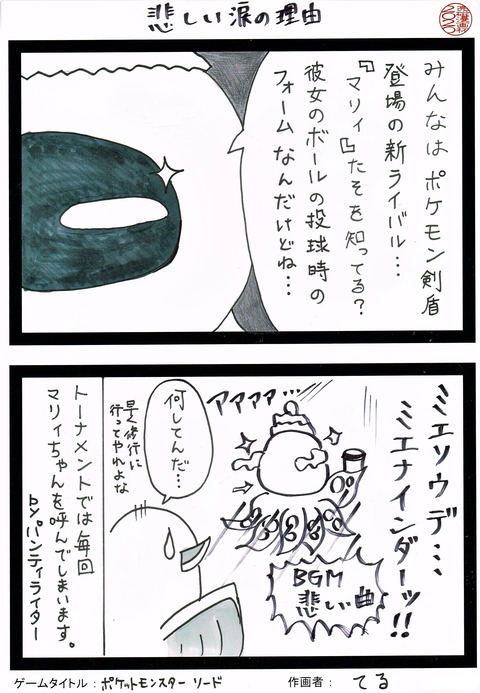 悲しい涙の理由
みんなはポケモン剣盾
登場の新ライバル…
『マリィ』たそを知ってる?
彼女のボールの投球時の
フォームなんだけどね…
ミエソウデ…
ミエナインダーッ!!
アァァァ…
BGM
悲しい曲
何してんだ…
早く修行に
行ってやれよな
トーナメントでは毎回
マリィちゃんを呼んでしまいます。
byパンティライター
ゲームタイトル:ポケットモンスター ソード
作画者: てる